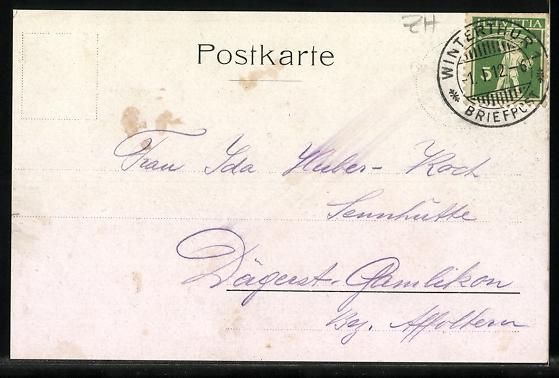 ZH
HELVETIA
5
WINTERTHUR 1
-1.I.12.-6
BRIEFPOST
Postkarte
Frau Ida Huber-Koch
Sennhütte
Dägerst-Gamlikon
Bez. Affoltern